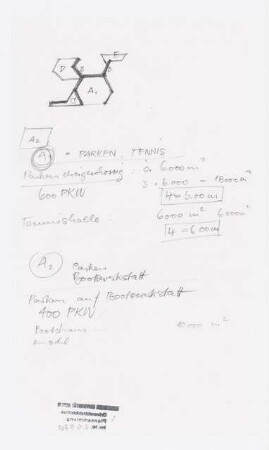 D E
A₁
A₂
A₁ = PARKEN, TENNIS
Parken eingeschossig : á 6000 m²
3 · 6.000 = 18000 m²
600 PKW 4 = 6.00 m
Tennishalle : 6000 m² 6000 m²
4 = 6.00 m
A₂ Parken
Bootswerkstatt
Parken auf Bootswerkstatt
400 PKW
Bootshaus 10.000 m²